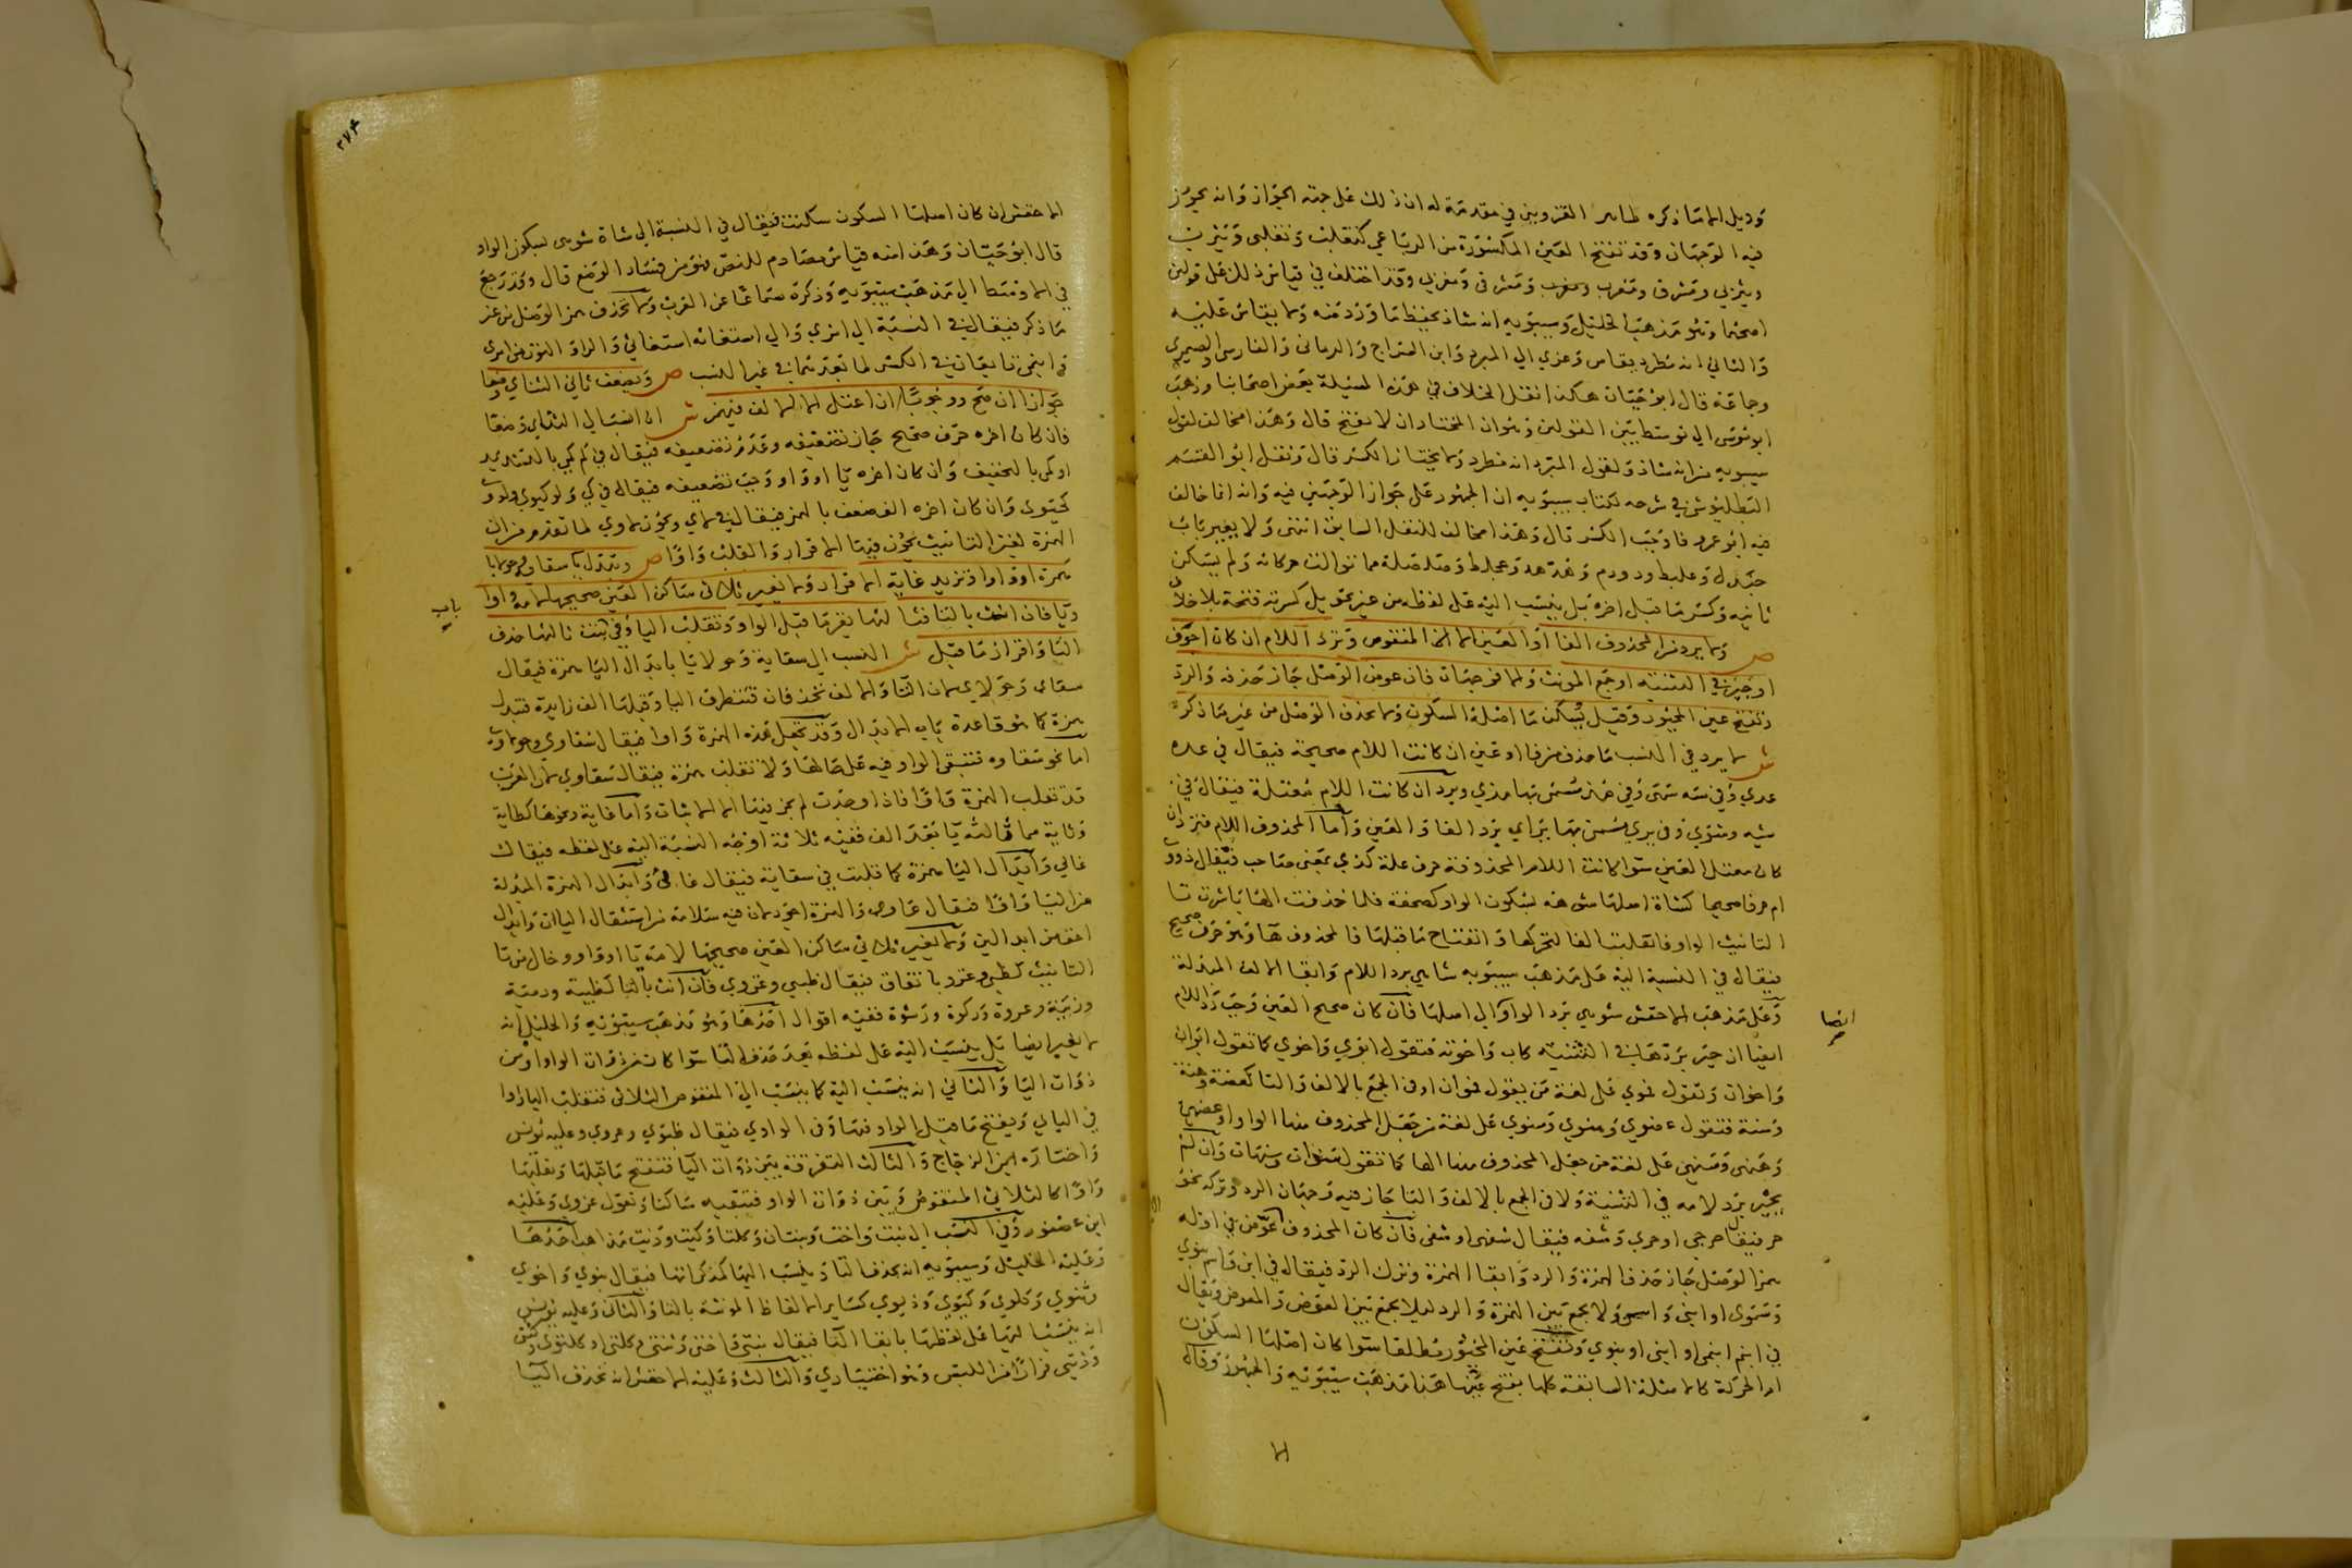 ودليل الاما ذكره طاهر القزويني في مقدمة له ان ذلك على جهة الجواز وانه يجوز
فيه الوجهان وقد تفتح العين المكسورة من الرباعي كتغلب وتغلبي ويثرب
ويثربي ومشرق ومغرب ومشرقي ومغربي وقد اختلف في قياس ذلك على قولين
اصحهما وهو مذهب الخليل وسيبويه انه شاذ يحفظ ما ورد منه ولا يقاس عليه
والثاني انه مطرد يقاس وعزي الي المبرد وابن السراج والرماني والفارسي والصيمري
وجماعة قال ابو حيان هكذا نقل الخلاف في هذه المسئلة بعض اصحابنا وذهب
ابو موسى الي توسط بين القولين وهوان المختار ان لا يفتح قال وهذا مخالف لقول
سيبويه من انه شاذ ولقول المبرد انه مطرد ولا يختار الكسر قال ونقل ابو القسم
البطليوسي في شرحه لكتاب سيبويه ان الجمهور على جواز الوجهين فيه وانه انما خالف
فيه ابو عمرو فاوجب الكسر قال وهذا مخالف للنقل السابق انتهى ولا يغير باب
جندل وعلبط ودودم وهدهد وعجلط وصلصلة مما توالت حركاته ولم يسكن
ثانيه وكسر ما قبل اخره بل ينسب اليه على لفظه من غير تحويل كسرته فتحة بلا خلاف
ص ولا يرد من المحذوف الفا او العين الا المنقوص وترد اللام ان كان اجوف
او جبر في التثنية او جمع المونث والا فوجهان فان عوض الوصل جاز حذفه والرد
وتفتح عين المجبور وقيل يسكن ما اصله السكون ولا يحذف الوصل من غير ما ذكر
ش لا يرد في النسب ما حذف من فا او عين ان كانت اللام صحيحة فيقال في عده
عدي وفي سه سهي وفي مسمى بها مذي ويرد ان كانت اللام معتلة فيقال في
شيه وشوي وفي يري مسمى بها يراي برد الفا والعين واما المحذوف اللام فيرد ان
كان معتل العين سوا كانت اللام المحذوفة حرف علة كذي بمعنى صاحب فيقال ذووي
ام حرفا صحيحا كشاة اصلها شوهه بسكون الواو كصحفة فلما حذفت الها باشرت تا
التانيث الواو فانقلبت الفا لتحركها وانفتاح ما قبلها فالمحذوف ها وهو حرف صحيح
فيقال في النسبة اليه على مذهب سيبويه شاهي برد اللام وابقا الالف المبدلة
وعلى مذهب الاخفش شوهي برد الواو الي اصلها فان كان صحيح العين وجب رد اللام
ايضا ان جبر بردها في التثنية كاب واخوته فتقول ابوي واخوي كما تقول ابوان
واخوان وتقول فموي على لغة من يقول فموان او في الجمع بالالف والتا كعضة وهنة
وسنة فتقول عضوي وهنوي وسنوي على لغة من جعل المحذوف منها الواو او عضهي
وهنهي وسنهي على لغة من جعل المحذوف منها الها كما تقول سنوات وسنهات وان لم
يجبر برد لامه في التثنية ولا في الجمع بالالف والتا جاز فيه وجهان الرد وتركه نحو
حر فيقال حرحي او حري وشفه فيقال شفهي او شفي فان كان المحذوف عوض في اوله
همز الوصل جاز حذف الهمزة والرد وابقا الهمزة وترك الرد فيقال في ابن واسم بنوي
وسموي او ابني واسمي ولا يجمع بين الهمزة والرد ليلا يجمع بين العوض والمعوض ويقال
في ابنم ابنمي او ابني او بنوي وتفتح عين المجبور مطلقا سوا كان اصلها السكون
ام الحركة كالامثلة السابقة كلها بفتح عينها هذا مذهب سيبويه والجمهور وقال
ايضا
٣٧٤
الاخفش ان كان اصلها السكون سكنت فيقال في النسبة الي شاة شوهي بسكون الواو
قال ابو حيان وهذا منه قياس مصادم للنص فهو من فساد الوضع قال وقد رجع
في الاوسط الي مذهب سيبويه وذكره سماعا عن العرب ولا تحذف همز الوصل من غير
ما ذكر فيقال في النسبة الي امري والي استغاثه استغاثي والراو النون من امري
وابنمي تابعان في الكسر لما بعدهما في غير النسب ص ويضعف ثاني الثنائي وضعا
جوازا ان صح ووجوبا ان اعتل الا الالف فيهمز ش ان انتسب الي الثنائي وضعا
فان كان اخره حرف صحيح جاز تضعيفه وعدم تضعيفه فيقال في كم كمي بالتشديد
او كمي بالتخفيف وان كان اخره يا او واو وجب تضعيفه فيقال في كي ولو كيوي ولووي
كحيوي وان كان اخره الف ضعف بالهمز فيقال في لا لاي ويجوز لاوي لما تقدم من ان
الهمزة لغير التانيث يجوز فيها الاقرار والقلب واوا ص وتبدل يا سقاية وحولايا
همزة او واوا وتزيد غاية الاقرار ولا يغير ثلاثي ساكن العين صحيحها لامه واوا
ويا فان انث بالتا فثالثها يفتح ما قبل الواو وتقلب اليا وفي بنت ثالثها حذف
التا واقرار ما قبل ش النسب الي سقاية وحولايا بابدال اليا همزة فيقال
سقاي وحولاي لان التا والالف تحذفان فتتطرف اليا وقبلها الف زايدة فتبدل
همزة كما هو قاعدة باب الابدال وقد تجعل هذه الهمزة واوا فيقال سقاوي وحولاوي
اما نحو شقاوه فتبقى الواو فيه على حالها ولا تقلب همزة فيقال شقاوي لان العرب
قد تقلب الهمزة واوا فاذا وجدت لم يجز فيها الا الاثبات واما غاية ونحوها كطاية
وثاية مما ثالثه يا بعد الف ففيه ثلاثة اوجه النسبة اليه على لفظه فيقال
غايي وابدال اليا همزة كما قلبت في سقاية فيقال غائي وابدال الهمزة المبدلة
من اليا واوا فيقال غاوي والهمزة اجود لان فيه سلامة من استثقال اليات وابدال
اخف من ابدالين ولا يغير ثلاثي ساكن العين صحيحها لامه يا او واو وخال من تا
التانيث كظبي وغزو باتفاق فيقال ظبيي وغزوي فان انث بالتا كظبية ودمية
وزنية وعروة وركوة ورشوة ففيه اقوال احدها وهو مذهب سيبويه والخليل انه
لا يغير ايضا بل ينسب اليه على لفظه بعد حذف التا سوا كان من ذوات الواو او من
ذوات اليا والثاني انه ينسب اليه كما ينسب الي المنقوص الثلاثي فتقلب اليا واوا
في اليايي ويفتح ما قبل الواو فيها وفي الواوي فيقال ظبوي وعروي وعليه يونس
واختاره الزجاج والثالث التفرقة بين ذوات اليا فتفتح ما قبلها وتقلبها
واوا كالثلاثي المنقوص وبين ذوات الواو فتبقيه ساكنا وتقول غزوي وعليه
ابن عصفور وفي النسب الي بنت واخت وثنتان وكلتا وكيت وذيت مذاهب احدها
وعليه الخليل وسيبويه انه تحذف التا وينسب اليها كمذكراتها فيقال بنوي واخوي
وثنوي وكلوي وكيوي وذيوي كسائر الالفاظ المونثة بالتا والثاني وعليه يونس
انه ينسب اليها على لفظها بابقا التا فيقال بنتي واختي وثنتي وكلتي او كلتوي وكيتي
وذيتي فرارا من اللبس وهو اختياري والثالث وعليه الاخفش انه تحذف التا
باب